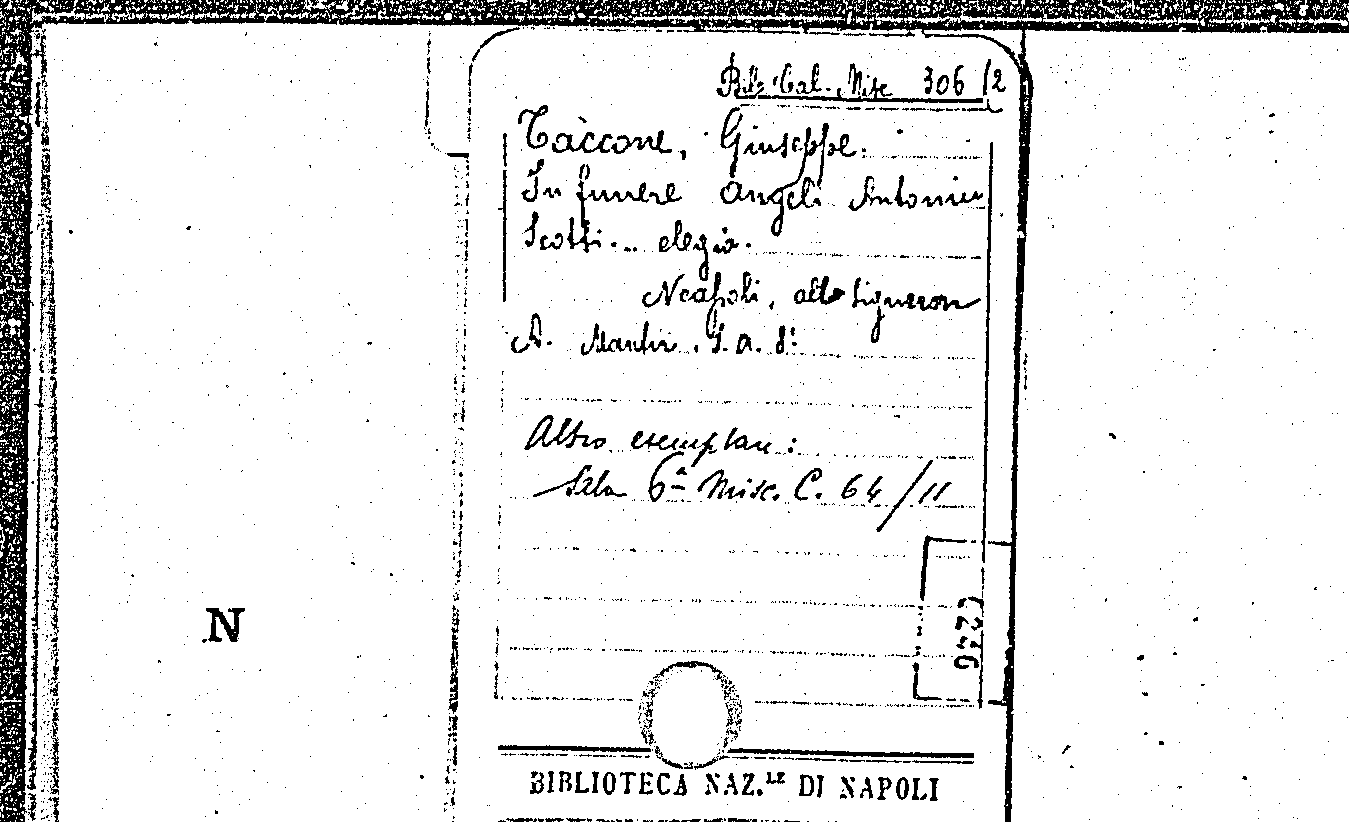 Bib. Cal. Misc 306/2
Taccone, Giuseppe.
In funere Angeli Antonii
Scotti... elegia.
Neapoli,
A. s. a. 8º
Altro esemplare:
Sala 6ª Misc. C. 64/11
N
BIBLIOTECA NAZ.LE DI NAPOLI